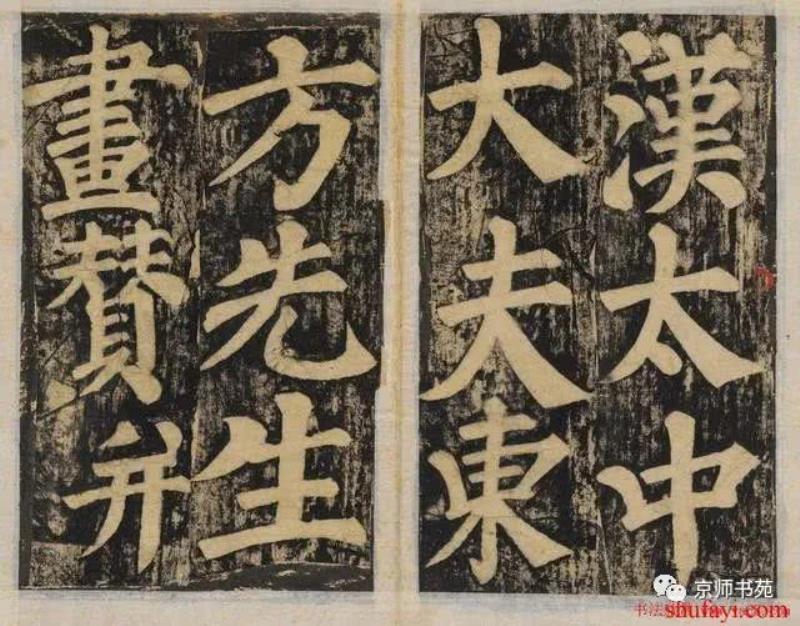 漢太中
大夫東
方先生
畫賛并
京师书苑
shufayi.com